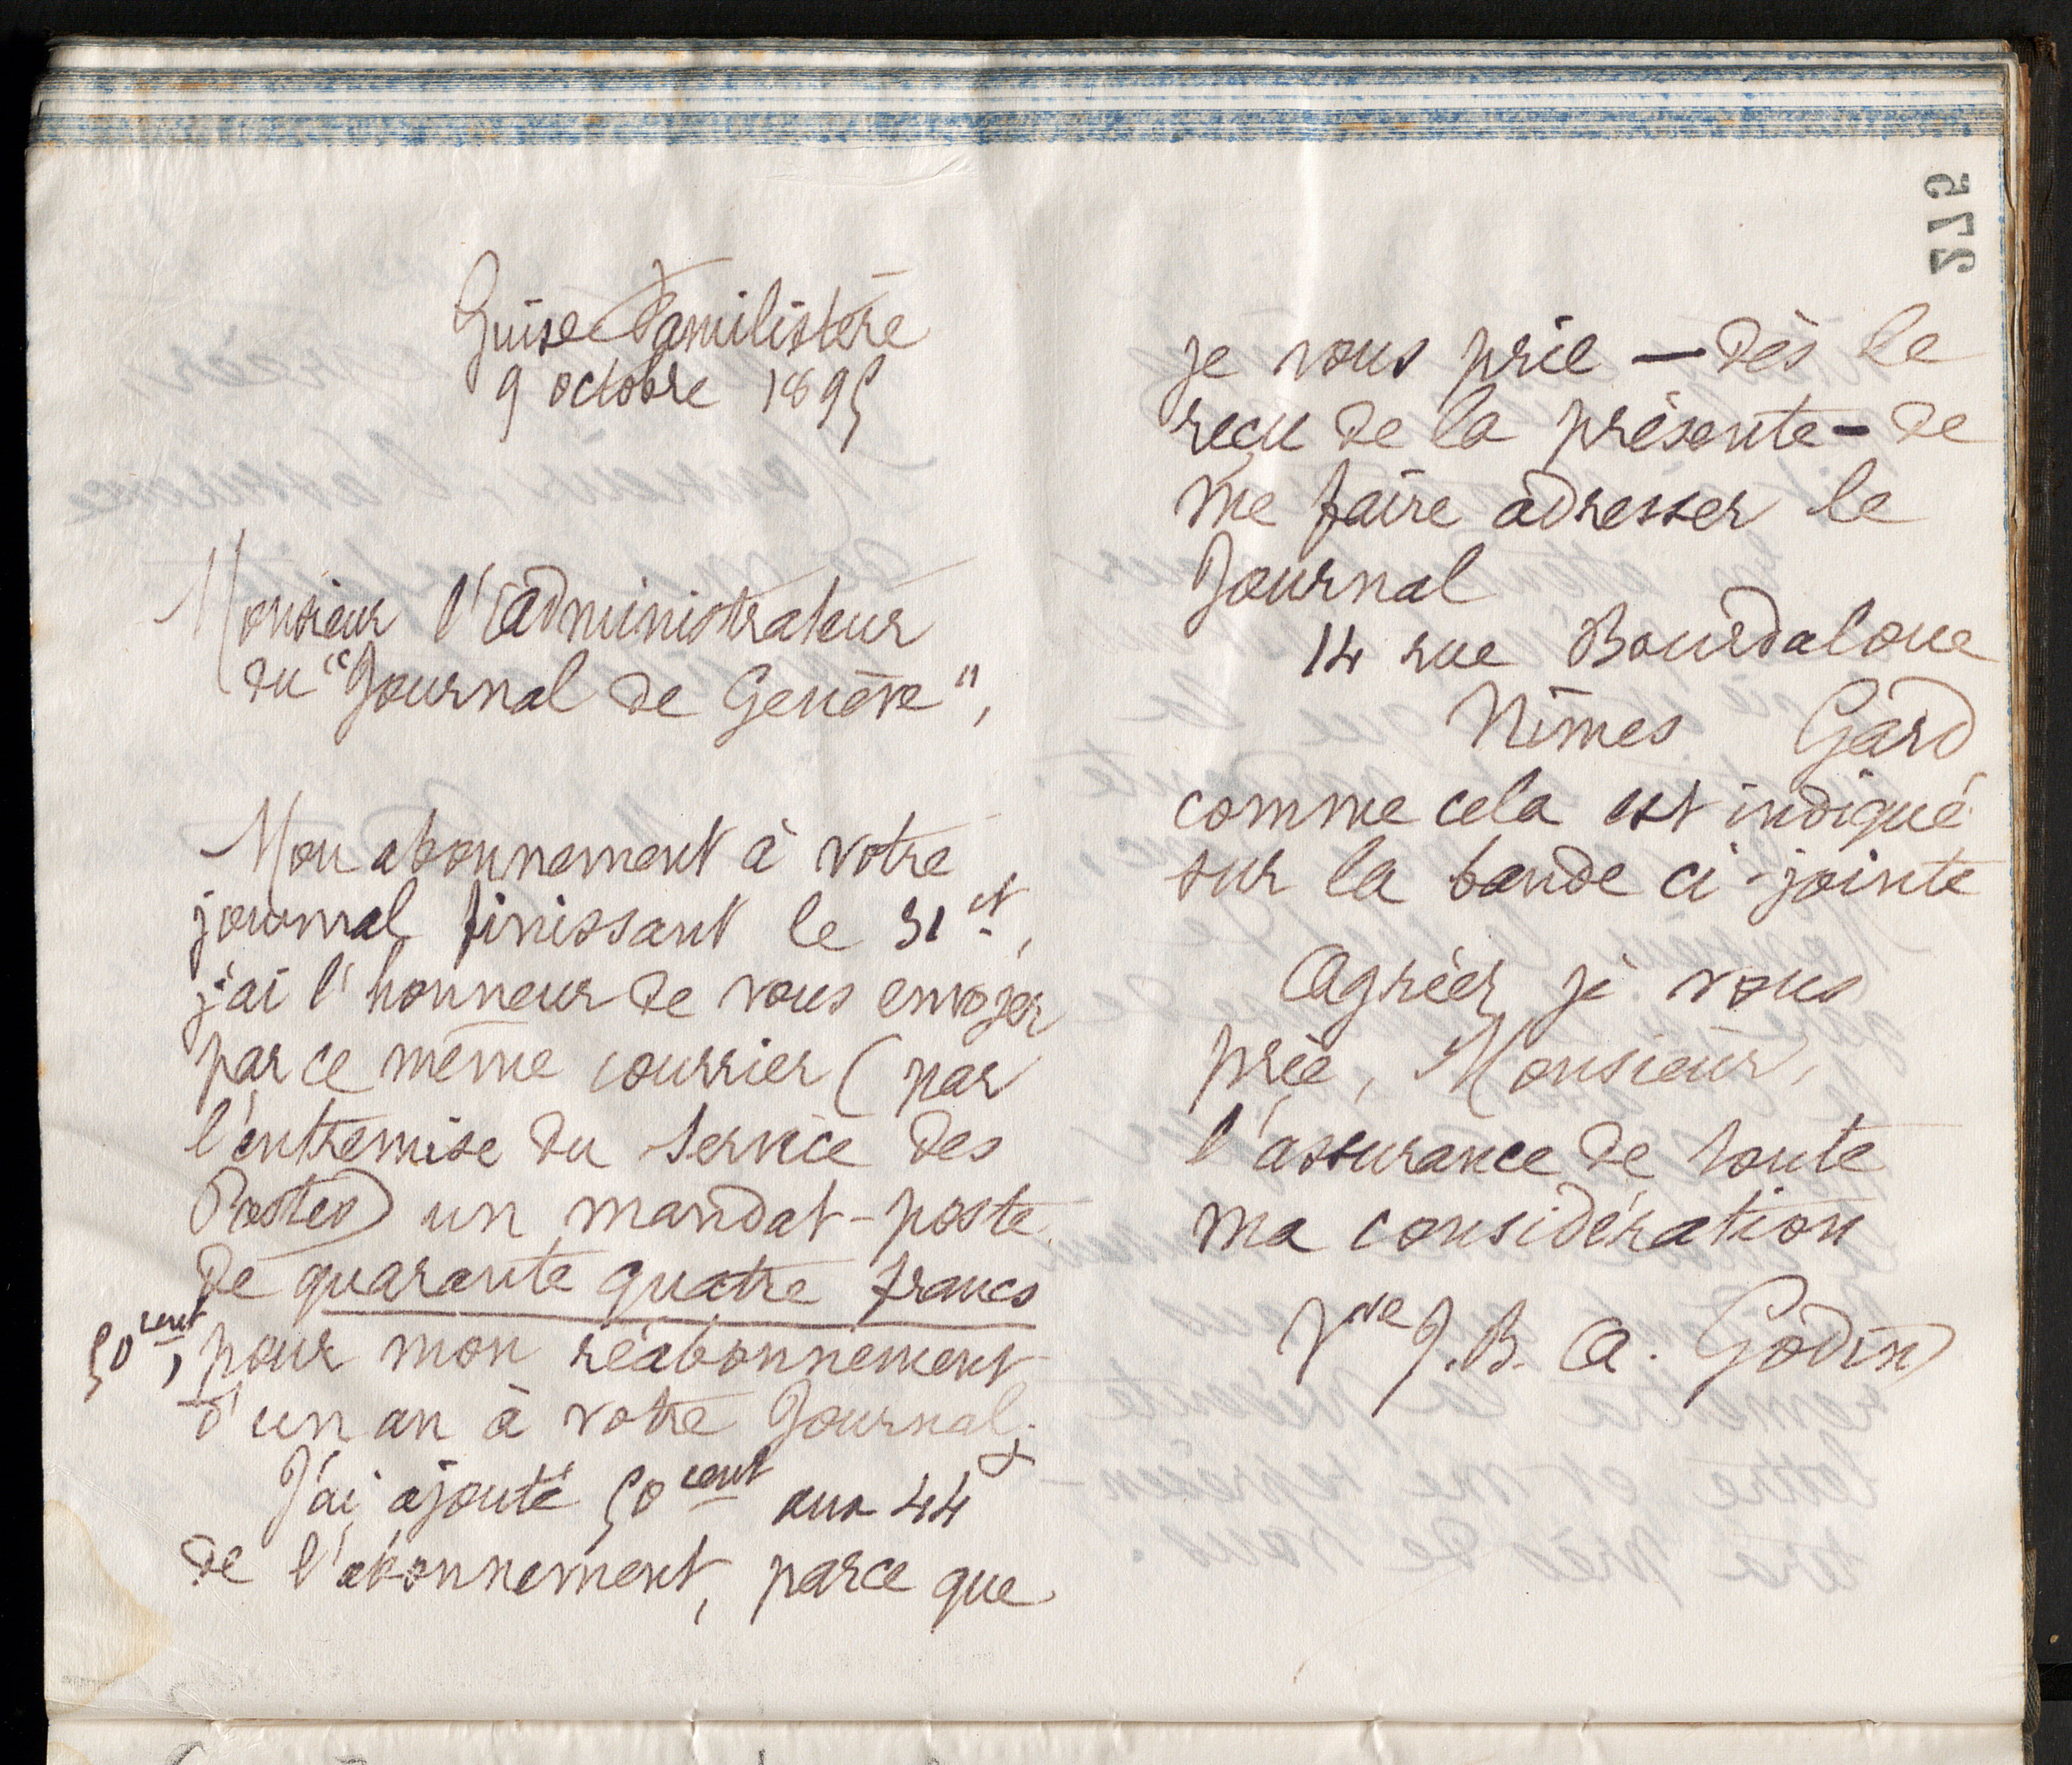 Guise Familistère
9 octobre 1895
Monsieur l'administrateur
du "Journal de Genève",
Mon abonnement à votre
journal finissant le 31 ct,
j'ai l'honneur de vous envoyer
par ce même courrier (par
l'entremise du service des
Postes) un mandat-poste
de quarante quatre francs
50 cent, pour mon réabonnement
d'un an à votre Journal.
J'ai ajouté 50 cent aux 44
de l'abonnement, parce que
275
je vous prie — dès le
reçu de la présente - de
me faire adresser le
Journal
14 rue Bourdaloue
Nîmes Gard
comme cela est indiqué
sur la bande ci-jointe
Agréez, je vous
prie, Monsieur,
l'assurance de toute
ma considération
Vve J. B. A. Godin